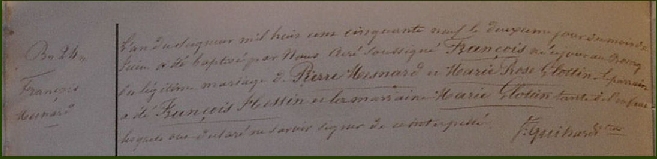 Bn 24
François
Mesnard
L'an du Seigneur mil huit cent cinquante neuf le deuxieme jour du mois de
Juin a été baptisé par Nous Curé soussigné François né
du légitime mariage de Pierre Mesnard et Marie Rose Clotin parrain
a été François Hessin et la marraine Marie Clotin tante de l'enfant
lesquels ont déclaré ne savoir signer de ce interpellés
Guihard